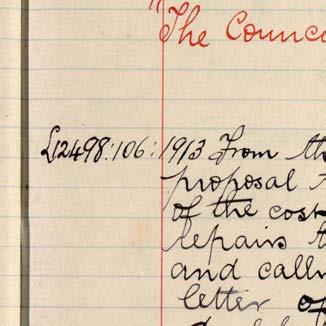 "The Counc
L12498:106: 1913 From th
proposal
of the cost
repairs t
and calli
letter of